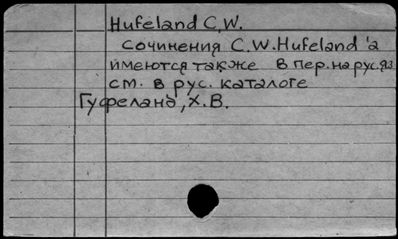 Hufeland C.W.
сочинения C.W.Hufeland'а
имеются также в пер. на рус.яз
см. в рус. каталоге
Гуфеланд, Х.В.